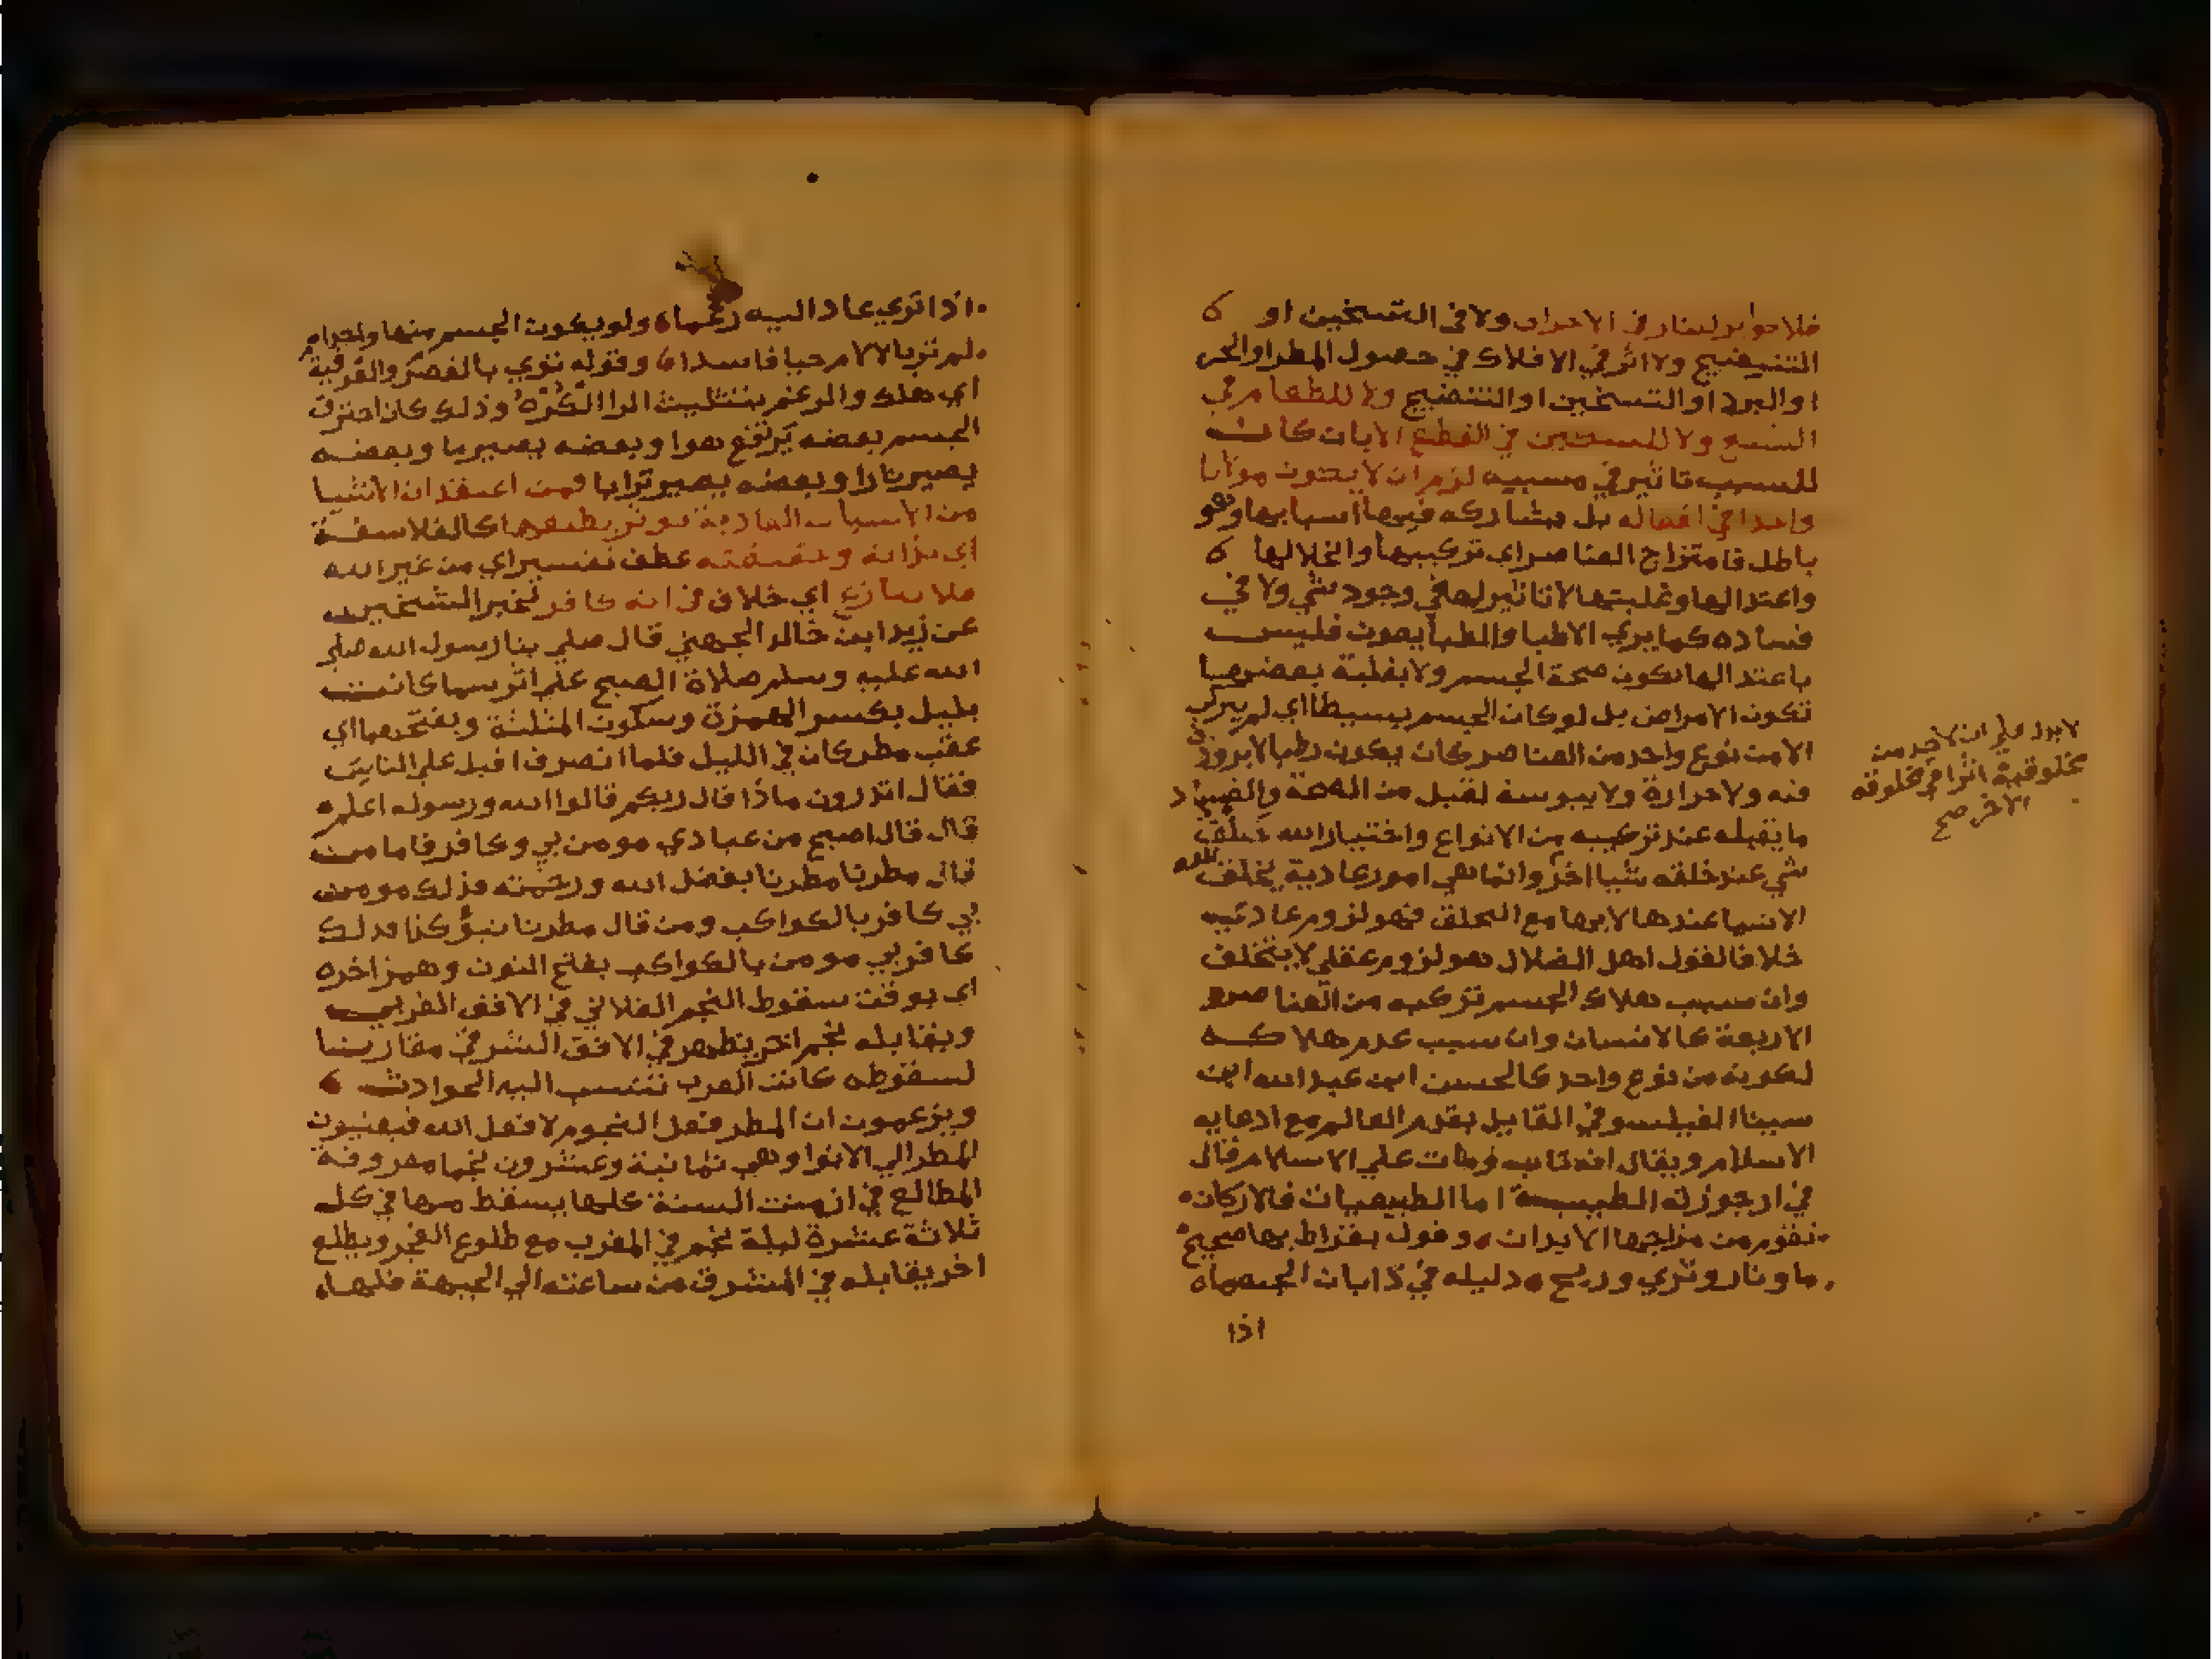 فلا تاثير للنار في الاحراق ولا في التسخين او
التنضيج ولا اثر في الافلاك في حصول المطر او الحر
او البرد او التسخين او التنضيج ولا للطعام في
الشبع ولا للسكين في القطع لانه لو كانت
للسبب تاثير في مسببه لزم ان لا يكون مولانا
واحدا في افعاله بل يشاركه فيها اسبابها وهو
باطل فامتزاج العناصر اي تركيبها وانحلالها
واعتدالها وغلبتها لا تاثير لها في وجود شي ولا في
فساده كما يري الاطبا والطبايعيون فليس
باعتدالها تكون صحة الجسم ولا بغلبة بعضها
تكون الامراض بل لو كان الجسم بسيطا اي لم يتركب
الا من نوع واحد من العناصر كان يكون رطبا لا برودة
فيه ولا حرارة ولا يبوسة لقبل من الصحة والفساد
ما يقبله عند تركيبه من الانواع واختيار الله خلق
شي عند خلقه شيا اخر وانما هي امور عادية يخلق الله
الاشيا عندها لا بها مع التخلف فهو لزوم عادي
خلافا لقول اهل الضلال هو لزوم عقلي لا يتخلف
وان سبب هلاك الجسم تركبه من العناصر
الاربعة كالانسان وان سبب عدم هلاكه
لكونه من نوع واحد كالحسن ابن عبد الله ابن
سينا الفيلسوفي القايل بقدم العالم مع ادعايه
الاسلام ويقال انه تاب ومات علي الاسلام قال
في ارجوزته الطبيبة اما الطبيعيات فالاركان
تقوم من مزاجها الابدان وقول بقراط بها صحيح
ما ونار وثري وريح دليله في ذا بان الجسما
اذا
لا يرد علي ان لاحد من
مخلوقية اثرا في مخلوقه
الاخر صح
اذا ثوي عاد اليه رغما ولو يكون الجسم منها واحدا
لم تر بالالام حيا فاسدا وقوله ثوي بالقصر والفوقية
اي هلك والرغم بتثليث الرا الكُرْه وذلك كان احترق
الجسم بعضه يرتفع هوا وبعضه يصير ما وبعضه
يصير نارا وبعضه يصير ترابا فمن اعتقد ان الاشيا
من الاسباب العادية توثر بطبعها كالفلاسفة
اي بذاته وحقيقته عطف تفسير اي من غير الله
فلا نزاع اي خلاف في انه كافر لخبر الشيخين
عن زيد ابن خالد الجهني قال صلي بنا رسول الله صلي
الله عليه وسلم صلاة الصبح علي اثر سما كانت
بليل بكسر الهمزة وسكون المثلثة وبفتحهما اي
عقب مطر كان في الليل فلما انصرف اقبل علي الناس
فقال اتدرون ماذا قال ربكم قالوا الله ورسوله اعلم
قال قال اصبح من عبادي مومن بي وكافر فاما من
قال مطرنا مطرنا بفضل الله ورحمته فذلك مومن
بي كافر بالكواكب ومن قال مطرنا بنوْ كذا فذلك
كافر بي مومن بالكواكب بفتح النون وهمز اخره
اي بوقت سقوط النجم الفلاني في الافق الغربي
ويقابله نجم اخر يظهر في الافق الشرقي مقارنا
لسقوطه كانت العرب تنسب اليه الحوادث
ويزعمون ان المطر فعل النجوم لا فعل الله فيضيفون
المطر الي الانوا وهي ثمانية وعشرون نجما معروفة
المطالع في ازمنت السنة كلها يسقط منها في كل
ثلاثة عشرة ليلة نجم في المغرب مع طلوع الفجر ويطلع
اخر يقابله في المشرق من ساعته الي الجبهة فلها